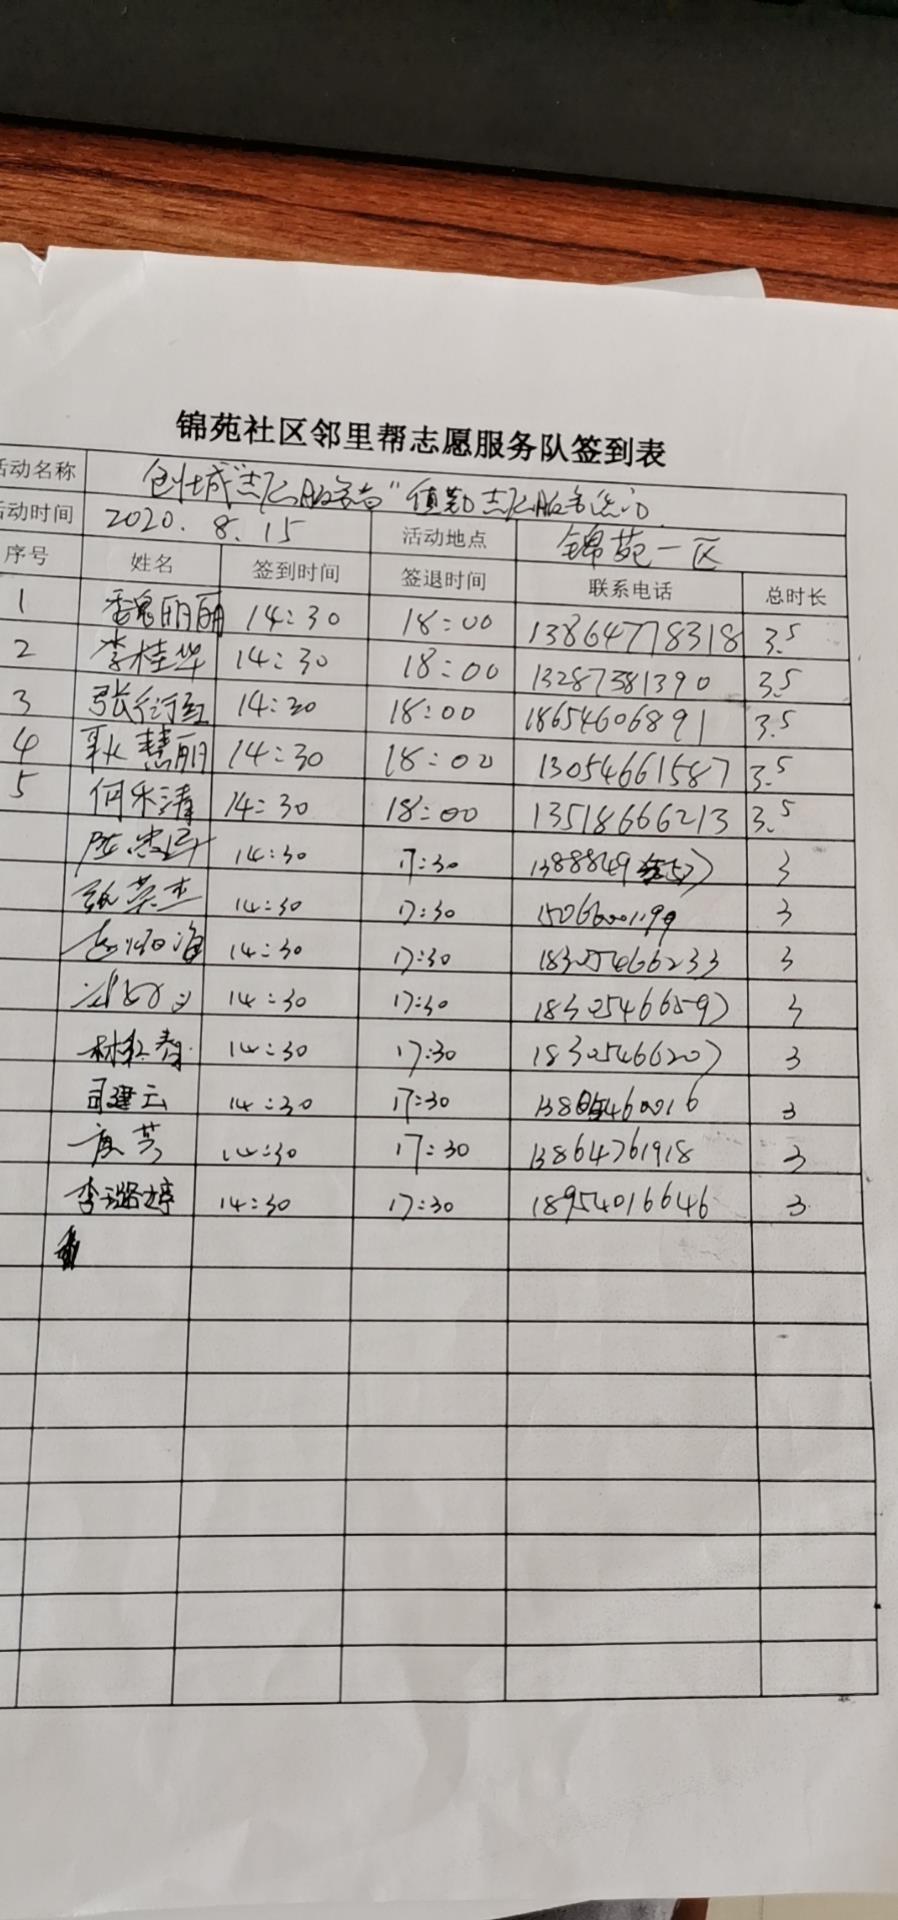 锦苑社区邻里帮志愿服务队签到表
活动名称 创城"志愿服务者"值勤志愿服务活动
活动时间 2020.8.15 活动地点 锦苑一区
序号 姓名 签到时间 签退时间 联系电话 总时长
1 魏丽丽 14:30 18:00 13864778318 3.5
2 李桂华 14:30 18:00 13287381390 3.5
3 张衍红 14:30 18:00 18654606891 3.5
4 耿慧丽 14:30 18:00 13054661587 3.5
5 何乐清 14:30 18:00 13518666213 3.5
14:30 17:30 3
张荣杰 14:30 17:30 3
14:30 17:30 18305466233 3
14:30 17:30 18305466597 3
14:30 17:30 18305466207 3
司建云 14:30 17:30 3
14:30 17:30 13864761918 3
李璐婷 14:30 17:30 18954016646 3